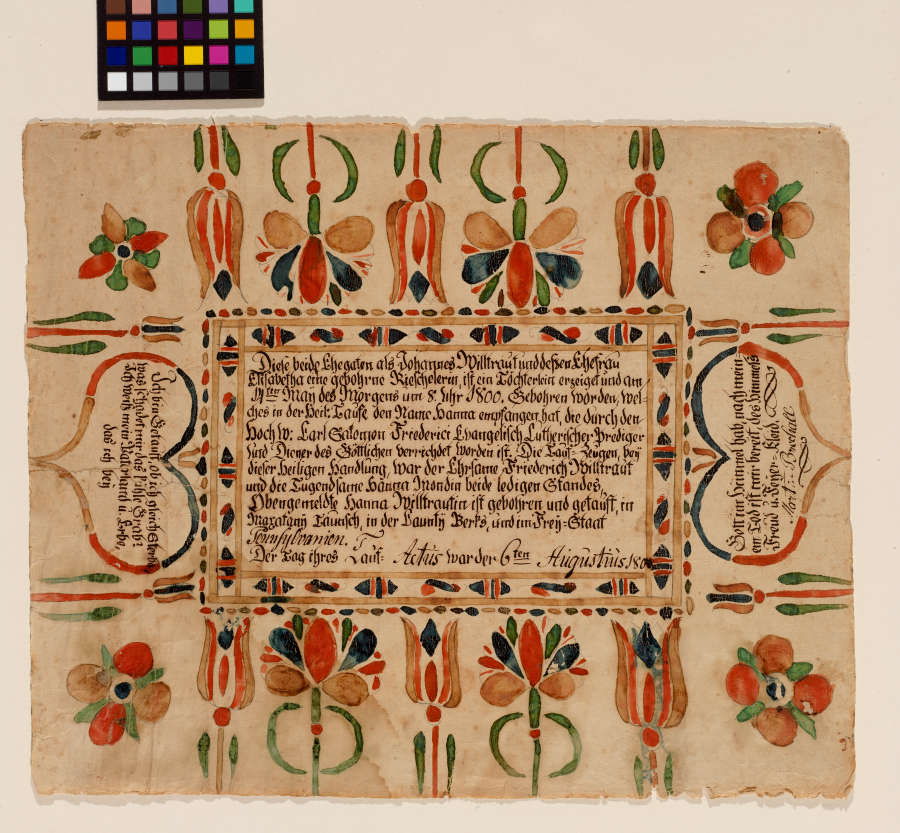 Diese beide Ehegaten als Johannes Willtraut und deßen Ehefrau
Elisabetha eine gebohrne Rieschelerin, ist ein Töchterlein erzeiget und am
14ten May des Morgens um 8. Uhr 1800. Gebohren worden, wel-
ches in der Heil: Taufe den Name Hanna empfangen hat, die durch den
Hoch W: Carl Salomon Friederici Evangelisch Lutherischer Prediger
und Diener des Göttlichen verrichdet worden ist. Die Tauf-Zeugen, bey
dieser Heiligen Handlung, war der Ehrsame Friederich Willtraut
und die Tugendsame Hanna Mondin beide ledigen Standes,
Obengemeldte Hanna Willtrautin ist gebohren und getauft, in
Maxatany Taunsch, in der Caunty Berks, und im Frey-Staat
Pennsylvanien.
Der Tag ihres Tauf: Actus war der 6ten Augustius
Ich bin Getauft, ob ich gleich Sterbe
was schadet mir das kühle Grab?
Ich weiß mein Vaterland u. Erbe,
das ich bey
Gott im Himmel hab, nach mein-
em Tod ist mir bereit, des Himmels
Freud u. Feyer-Kleid.
Mart: